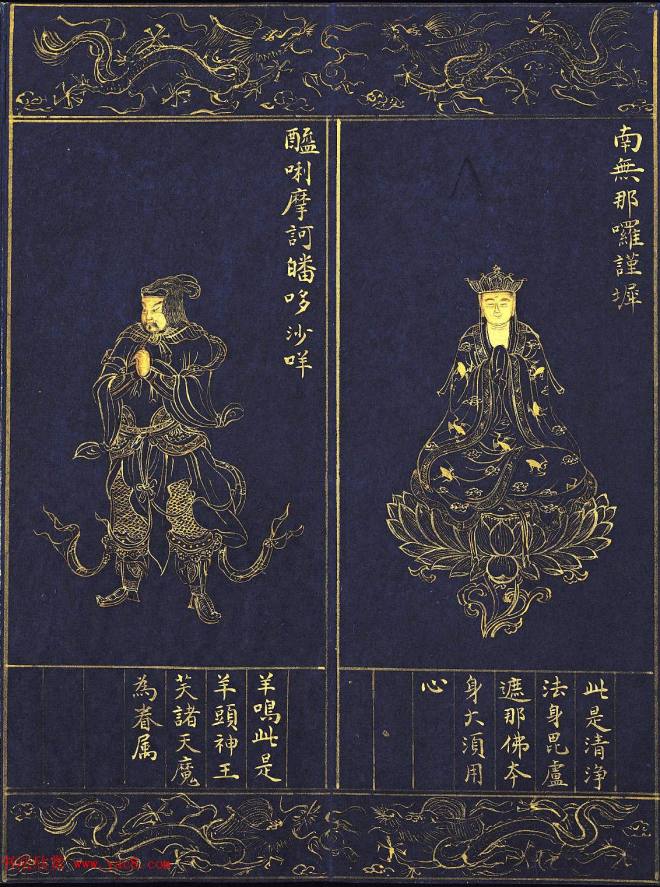 南無那囉謹墀
此是清浄
法身毘盧
遮那佛本
身大湏用
心
醯唎摩訶皤哆沙咩
羊鳴此是
羊頭神王
芖諸天魔
為眷属
www.yac8.com